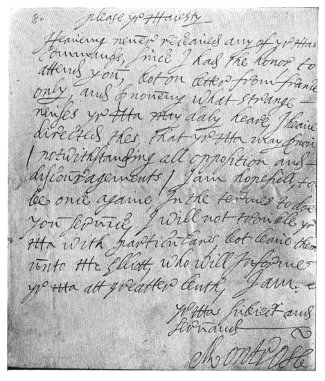 8.
please yr Majesty
Heaving never receaved any of yr Mas
Commands, since I had the honor to
attend you, bot on letter from france
only, and knowing what strange
neuses yr Ma may daly heare, I have
directed thes, that yr Ma may know
(notwithstanding all opposition and
discouragements) I am hopefull, to
be once againe In the termes to doe
you service, I will not trouble yr
Ma with particulars, bot leave them
unto Mr Elliott, who will Informe
yr Ma att greatter lenth, I am.
yr Mas subiect and
servand
Montrose